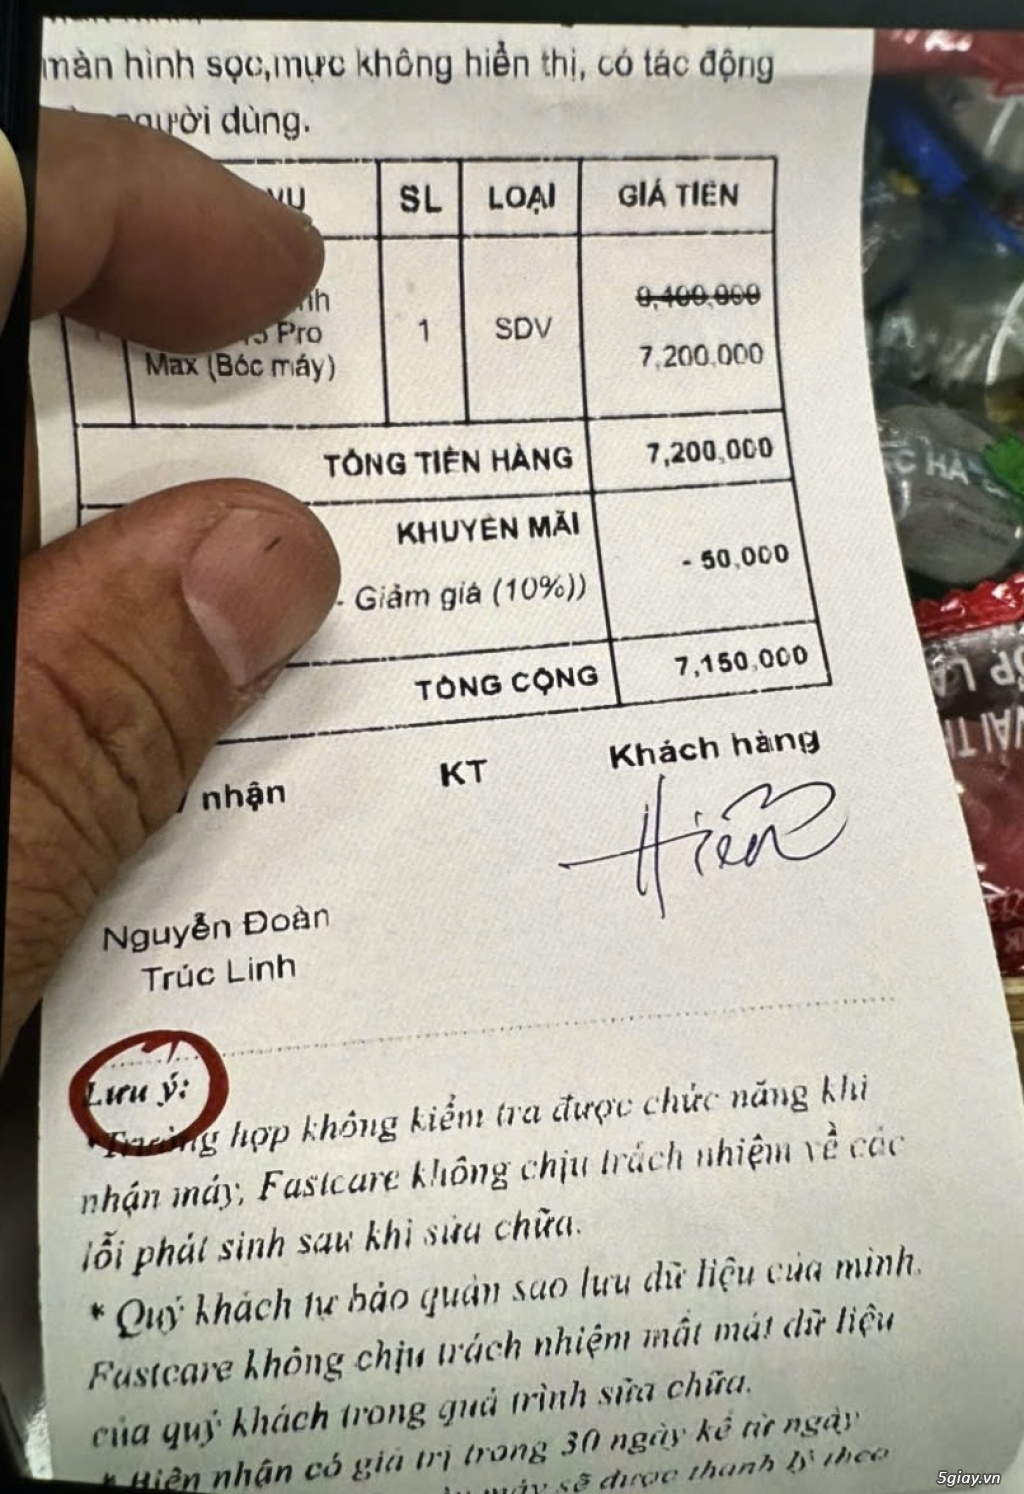 màn hình sọc,mực không hiển thị, có tác động
người dùng.
VỤ SL LOẠI GIÁ TIỀN
9,400,000
Pro 1 SDV
7,200,000
Max (Bóc máy)
TỔNG TIỀN HÀNG 7,200,000
KHUYẾN MÃI
- 50,000
- Giảm giá (10%))
TỔNG CỘNG 7,150,000
nhận KT Khách hàng
Hiền
Nguyễn Đoàn
Trúc Linh
Lưu ý:
*Trường hợp không kiểm tra được chức năng khi
nhận máy, Fastcare không chịu trách nhiệm về các
lỗi phát sinh sau khi sửa chữa.
* Quý khách tự bảo quản sao lưu dữ liệu của mình.
Fastcare không chịu trách nhiệm mất mát dữ liệu
của quý khách trong quá trình sửa chữa.
* Biên nhận có giá trị trong 30 ngày kể từ ngày
máy sẽ được thanh lý theo
5giay.vn